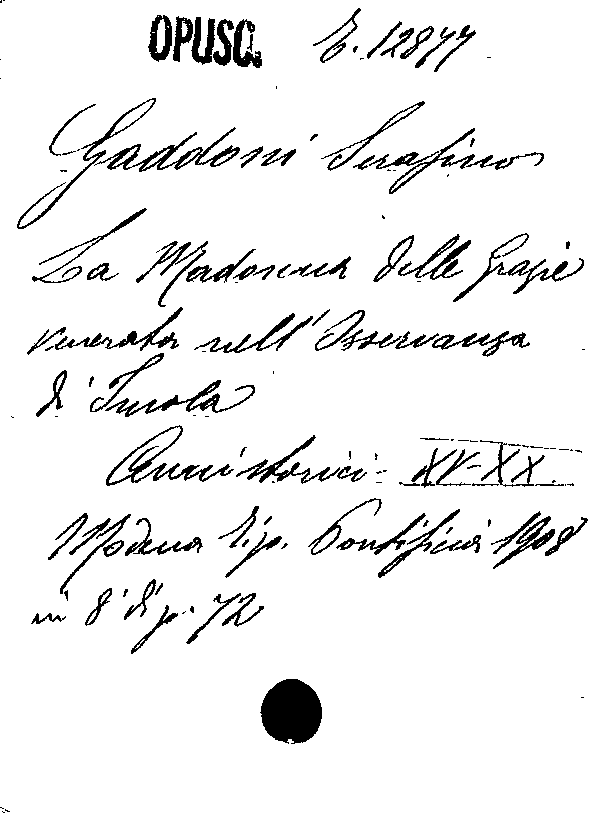 OPUSC. E. 12877
Gaddoni Serafino
La Madonna delle Grazie
venerata nell'Osservanza
di Imola
Cenni storici - XV-XX.
Modena Tip. Pontificia 1908
in 8° di p. 72